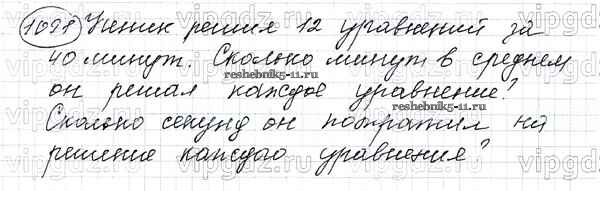 1091 Ученик решил 12 уравнений за
40 минут. Сколько минут в среднем
reshebnik5-11.ru
он решал каждое уравнение?
reshebnik5-11.ru
Сколько секунд он потратил на
решение каждого уравнения?